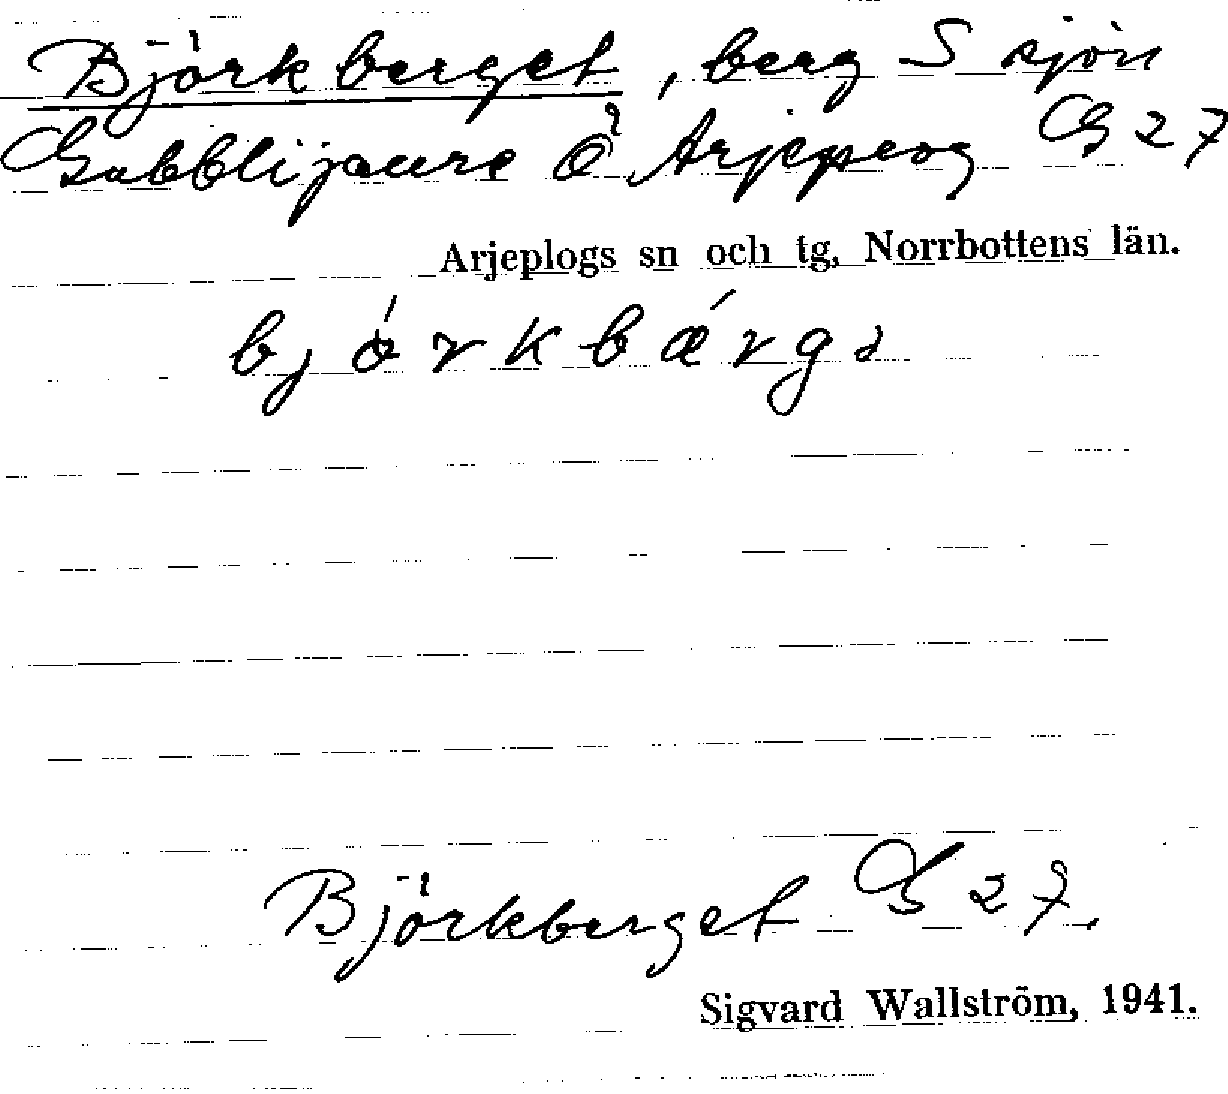 Björkberget, berg S sjön
Gubblijaure Ö Arjepeog G 27
Arjeplogs sn och tg, Norrbottens län.
bjórkbǽrgə
Björkberget G 27.
Sigvard Wallström, 1941.